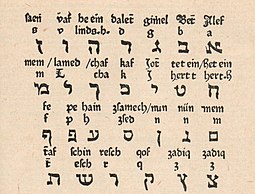 vaf be ein dalet gimel Bet Alef
s v linds.h. d g b a
א ב ג ד ה ו ז
mem / lamed / chaf kaf Jot tet ein / het ein
m L cha k J hert t hert.h
ח ט י כ ך ל מ
fe pe hain zsamech / nun nün mem
f ph n n m
ם נ ן ס ע פ ף
taf schin resch qof zadiq zadiq
t esch r q z z
צ ץ ק ר ש ת